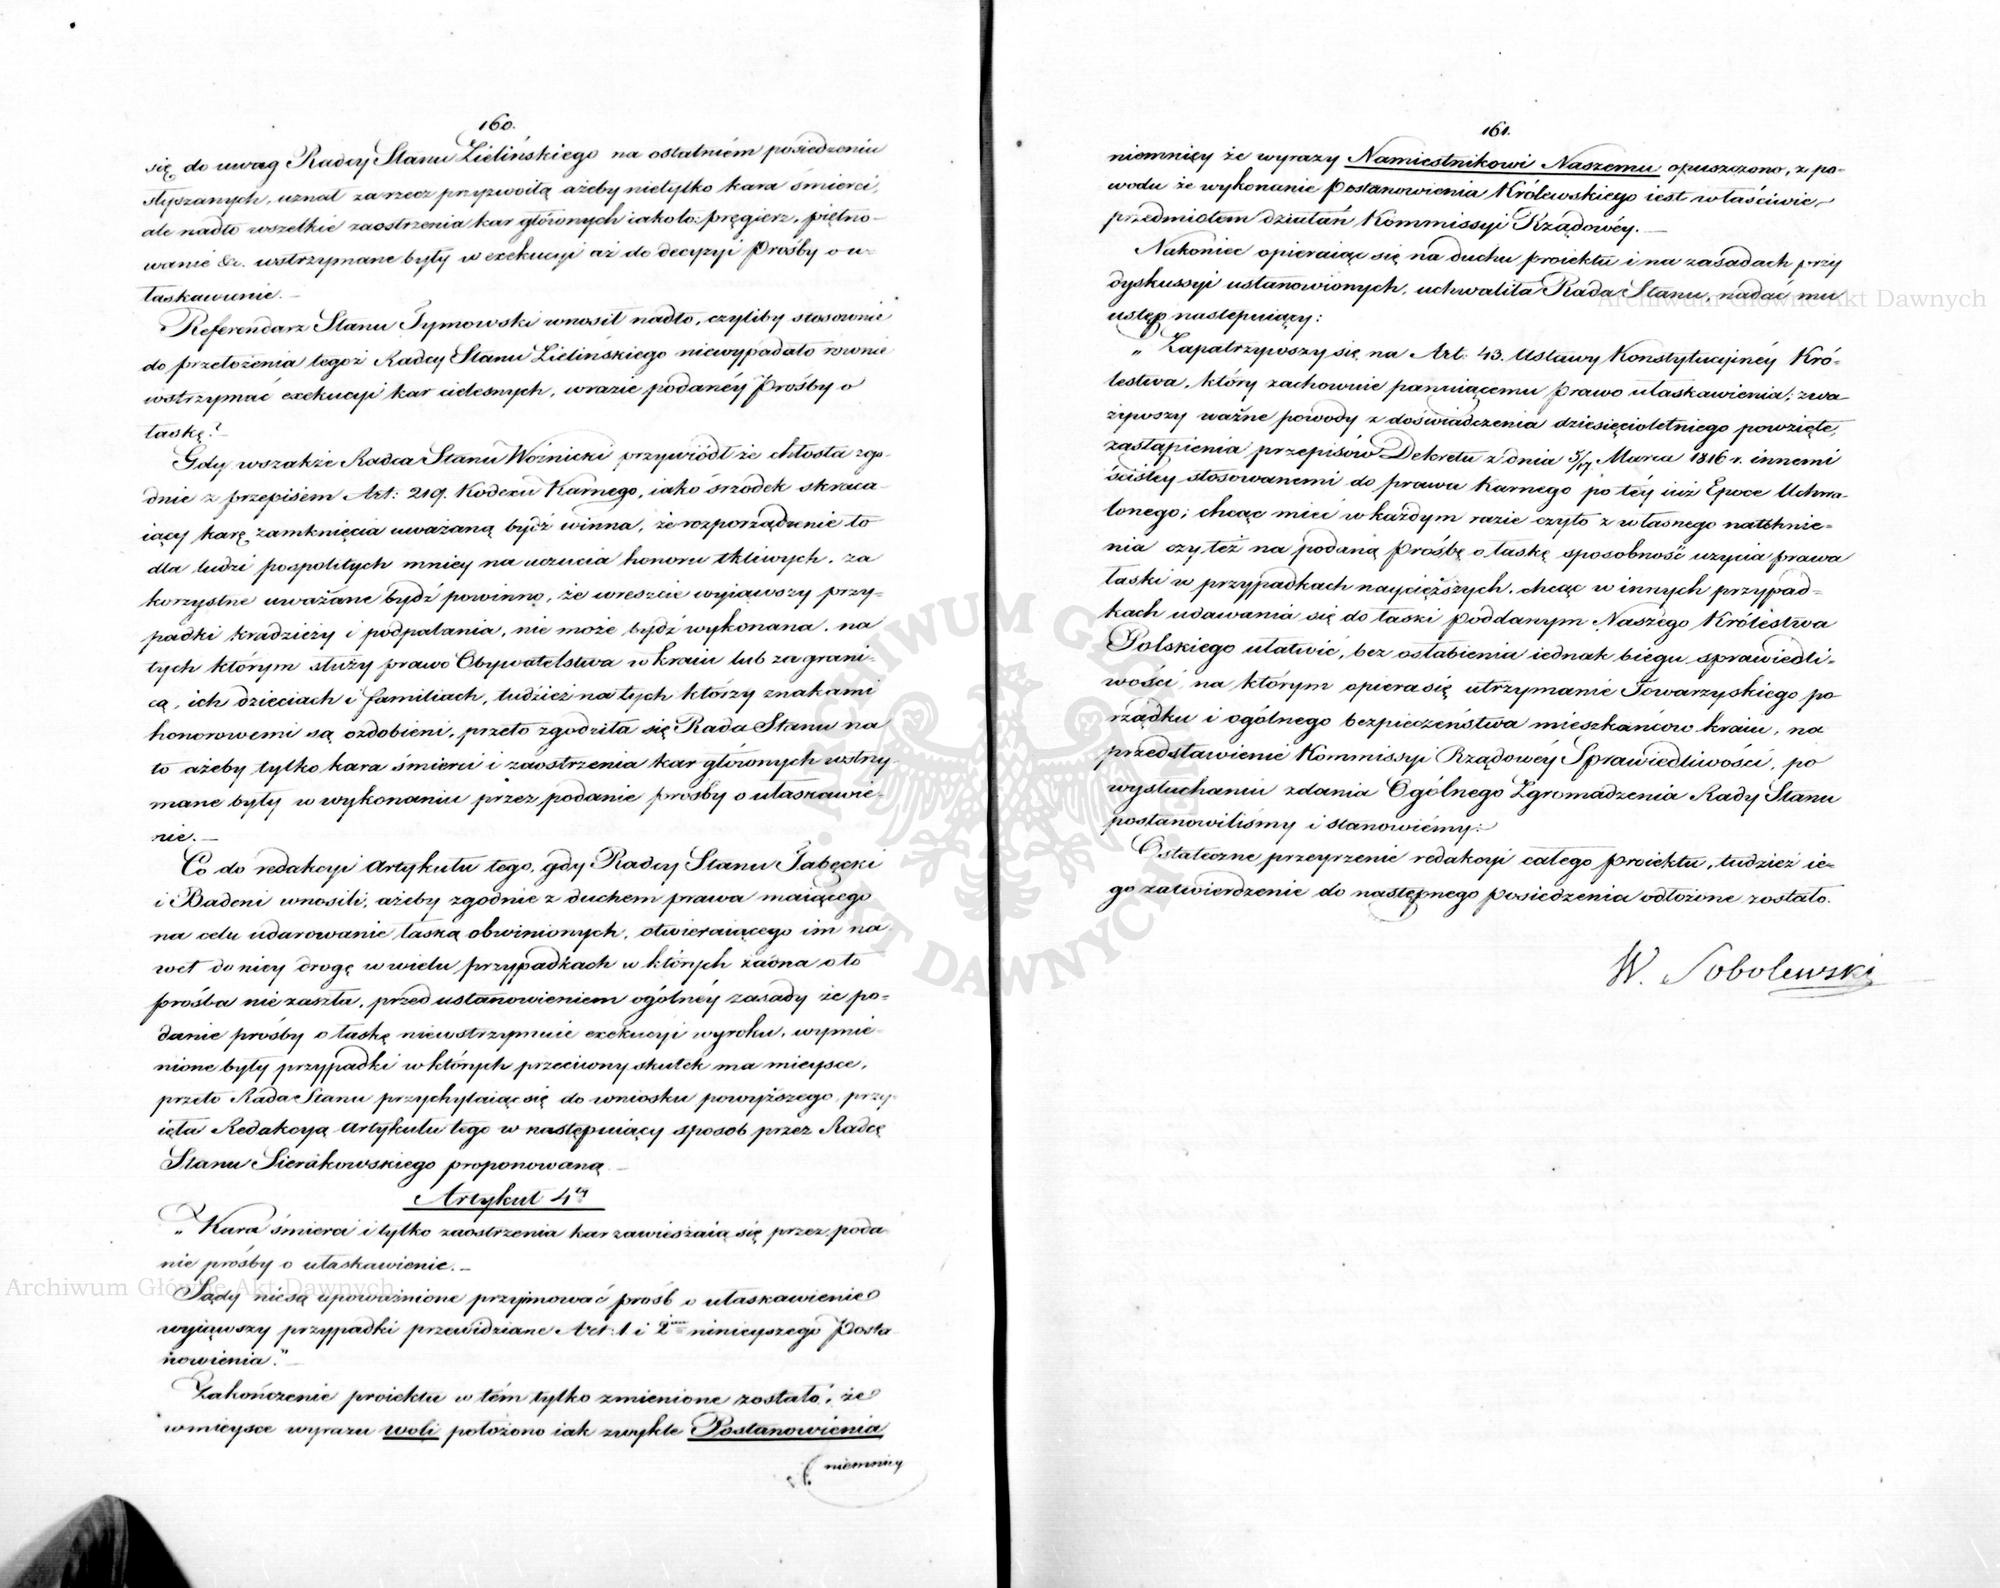 160.
się do uwag Radcy Stanu Zielińskiego na ostatniém posiedzeniu
słyszanych, uznał za rzecz przyzwoitą ażeby nietylko kara śmierci,
ale nadto wszelkie zaostrzenia kar głównych iakoto: pręgierz, piętno-
wanie &c. wstrzymane były w exekucyi aż do decyzyi prośby o u-
łaskawienie.—
Referendarz Stanu Tymowski wnosił nadto, czyliby stosownie
do przełożenia tegoż Radcy Stanu Zielińskiego niewypadało rownie
wstrzymać exekucyi kar cielesnych, wrazie podanéy prośby o
łaskę?—
Gdy wszakże Radca Stanu Woźnicki przywiódł że chłosta zgo-
dnie z przepisem Art: 219. Kodexu Karnego, iako srzodek skraca-
iący karę zamknięcia uważaną bydź winna, że rozporządzenie to
dla ludzi pospolitych mniey na uczucia honoru tkliwych, za
korzystne uważane bydź powinno, że wreszcie wyiąwszy przy-
padki kradzieży i podpalania, nie może bydź wykonana, na
tych którym służy prawo Obywatelstwa w kraiu lub za grani-
cą, ich dzieciach i familiach, tudzież na tych którzy znakami
honorowemi są ozdobieni, przeto zgodziła się Rada Stanu na
to ażeby tylko kara śmierci i zaostrzenia kar głównych wstrzy-
mane były w wykonaniu przez podanie prośby o ułaskawie-
nie.—
Co do redakcyi Artykułu tego, gdy Radcy Stanu Jabęcki
i Badeni wnosili, ażeby zgodnie z duchem prawa maiącego
na celu udarowanie łaską obwinionych, otwieraiącego im na-
wet do niey drogę w wielu przypadkach w których żadna o to
prośba nie zaszła, przed ustanowieniem ogólnéy zasady że po-
danie prośby o łaskę niewstrzymuie exekucyi wyroku, wymie-
nione były przypadki w których przeciwny skutek ma mieysce,
przeto Rada Stanu przychylaiąc się do wniosku powyższego, przy-
ięła Redakcyą Artykułu tego w następuiący sposob przez Radcę
Stanu Sierakowskiego proponowaną.—
Artykuł 4ty
„Kara śmierci i tylko zaostrzenia kar zawieszaią się przez poda-
nie prośby o ułaskawienie.—
Sądy nie są upoważnione przyimować prośb o ułaskawienie
wyiąwszy przypadki przewidziane Art: 1 i 2im ninieyszego Posta-
nowienia."—
Zakończenie proiektu w tém tylko zmienione zostało, że
w mieysce wyrazu woli położono iak zwykle Postanowienia
niemniey
161.
niemnięy że wyrazy Namiestnikowi Naszemu opuszczono, z po-
wodu że wykonanie Postanowienia Królewskiego iest właściwie
przedmiotem działań Kommissyi Rządowéy.—
Nakoniec opieraiąc się na duchu proiektu i na zasadach przy
dyskussyi ustanowionych, uchwaliła Rada Stanu, nadać mu
ustęp następuiący:
„Zapatrzywszy się na Art: 43. Ustawy Konstytucyinéy Kró-
lestwa, który zachowuie panuiącemu prawo ułaskawienia; zwa-
żywszy ważne powody z doświadczenia dziesięcioletniego powzięte,
zastąpienia przepisów Dekretu z dnia 5/17 Marca 1816 r. innemi
ściśley stosowanemi do prawa Karnego po téy iuż Epoce Uchwa-
lonego; chcąc mieć w każdym razie czyto z własnego natchnie-
nia czy też na podaną prośbę o łaskę sposobność użycia prawa
łaski w przypadkach naycięższych, chcąc w innych przypad-
kach udawania się do łaski poddanym Naszego Królestwa
Polskiego ułatwić, bez osłabienia iednak biegu sprawiedli-
wości, na którym opiera się utrzymanie Towarzyskiego po-
rządku i ogólnego bezpieczeństwa mieszkańców kraiu, na
przedstawienie Kommissyi Rządowéy Sprawiedliwości, po
wysłuchaniu zdania Ogólnego Zgromadzenia Rady Stanu
postanowiliśmy i stanowiémy:
Ostateczne przeyrzenie redakcyi całego proiektu, tudzież ie-
go zatwierdzenie do następnego posiedzenia odłożone zostało.
W. Sobolewski
Archiwum Główne Akt Dawnych
Archiwum Główne Akt Dawnych
ARCHIWUM GŁÓWNE AKT DAWNYCH